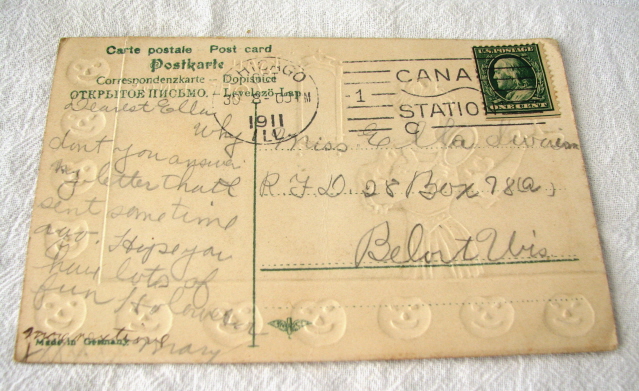 Carte postale – Post card
Postkarte
Correspondenzkarte – Dopisnice
ОТКРЫТОЕ ПИСЬМО. – Levelező-Lap
CHICAGO
1911
ILL.
1
CANAL
STATION
U.S. POSTAGE
ONE CENT
Dearest Ella
Why
dont you answer
my letter that I
sent sometime
ago. Hope you
have lots of
fun
Mary
Miss Ella
R F D 28 Box 78a,
Beloit Wis
Made in Germany